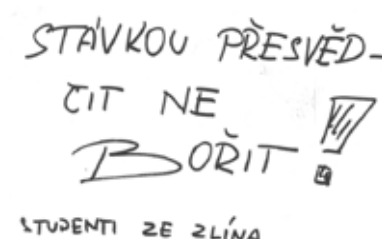 STÁVKOU PŘESVĚD-
ČIT NE
BOŘIT!
STUDENTI ZE ZLÍNA